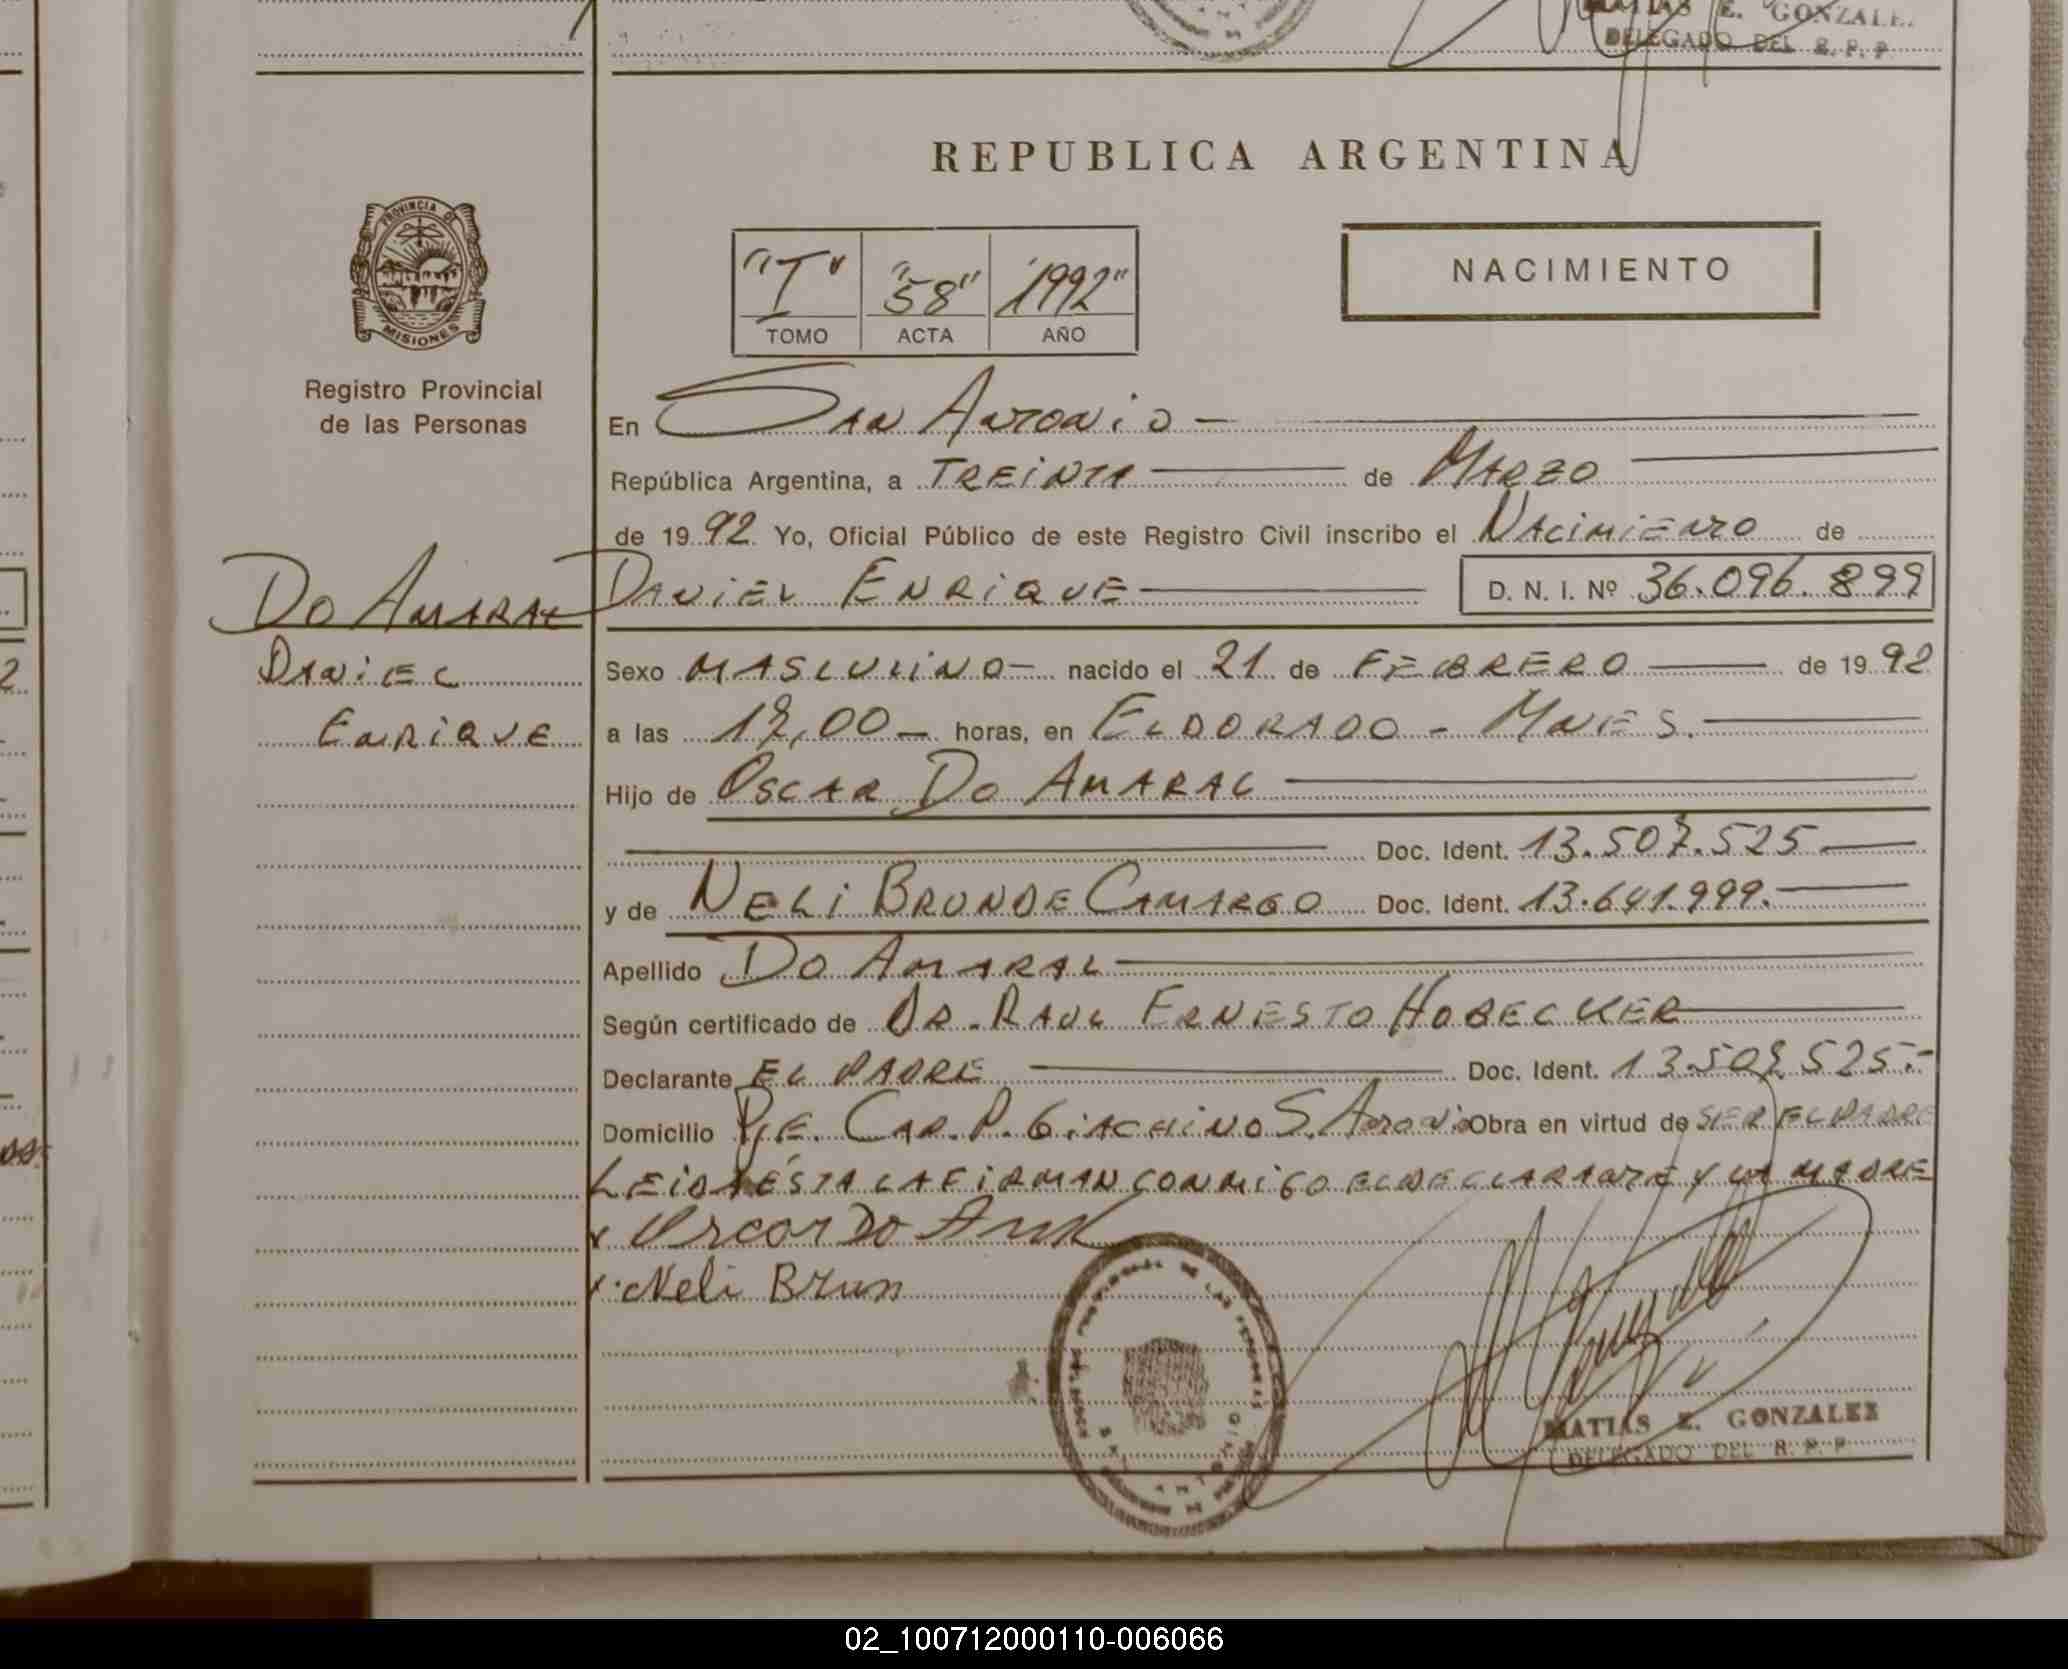 MATIAS E. GONZALEZ
DELEGADO DEL R. P. P.
REPUBLICA ARGENTINA
PROVINCIA DE MISIONES
Registro Provincial
de las Personas
"I" "58" "1992"
TOMO ACTA AÑO
NACIMIENTO
En SAN ANTONIO —
República Argentina, a TREINTA — de MARZO
de 1992 Yo, Oficial Público de este Registro Civil inscribo el NACIMIENTO de
DO AMARAL
DANIEL
ENRIQUE
DANIEL ENRIQUE — D. N. I. Nº 36.096.899
Sexo MASCULINO — nacido el 21 de FEBRERO — de 1992
a las 17,00 — horas, en ELDORADO - MNES.
Hijo de OSCAR DO AMARAL
Doc. Ident. 13.507.525
y de NELI BRUN DE CAMARGO Doc. Ident. 13.641.999.
Apellido DO AMARAL
Según certificado de DR. RAUL ERNESTO HOBECKER
Declarante EL PADRE — Doc. Ident. 13.507.525.-
Domicilio PJE. CAP. P. GIACHINO S. ANTONIO Obra en virtud de SER EL PADRE
LEIDA ÉSTA LA FIRMAN CONMIGO EL DECLARANTE Y LA MADRE
x Oscar Do
x Neli Brun
MATIAS E. GONZALEZ
DELEGADO DEL R. P. P
02_100712000110-006066